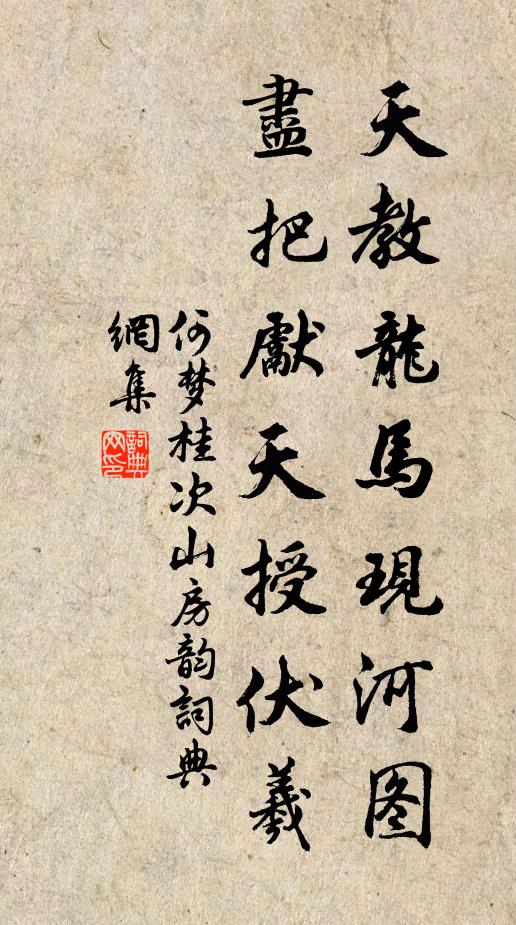 天教龍馬現河图
盡把獻天授伏羲
何梦桂次山房韵詞典
網集
詞典
网印